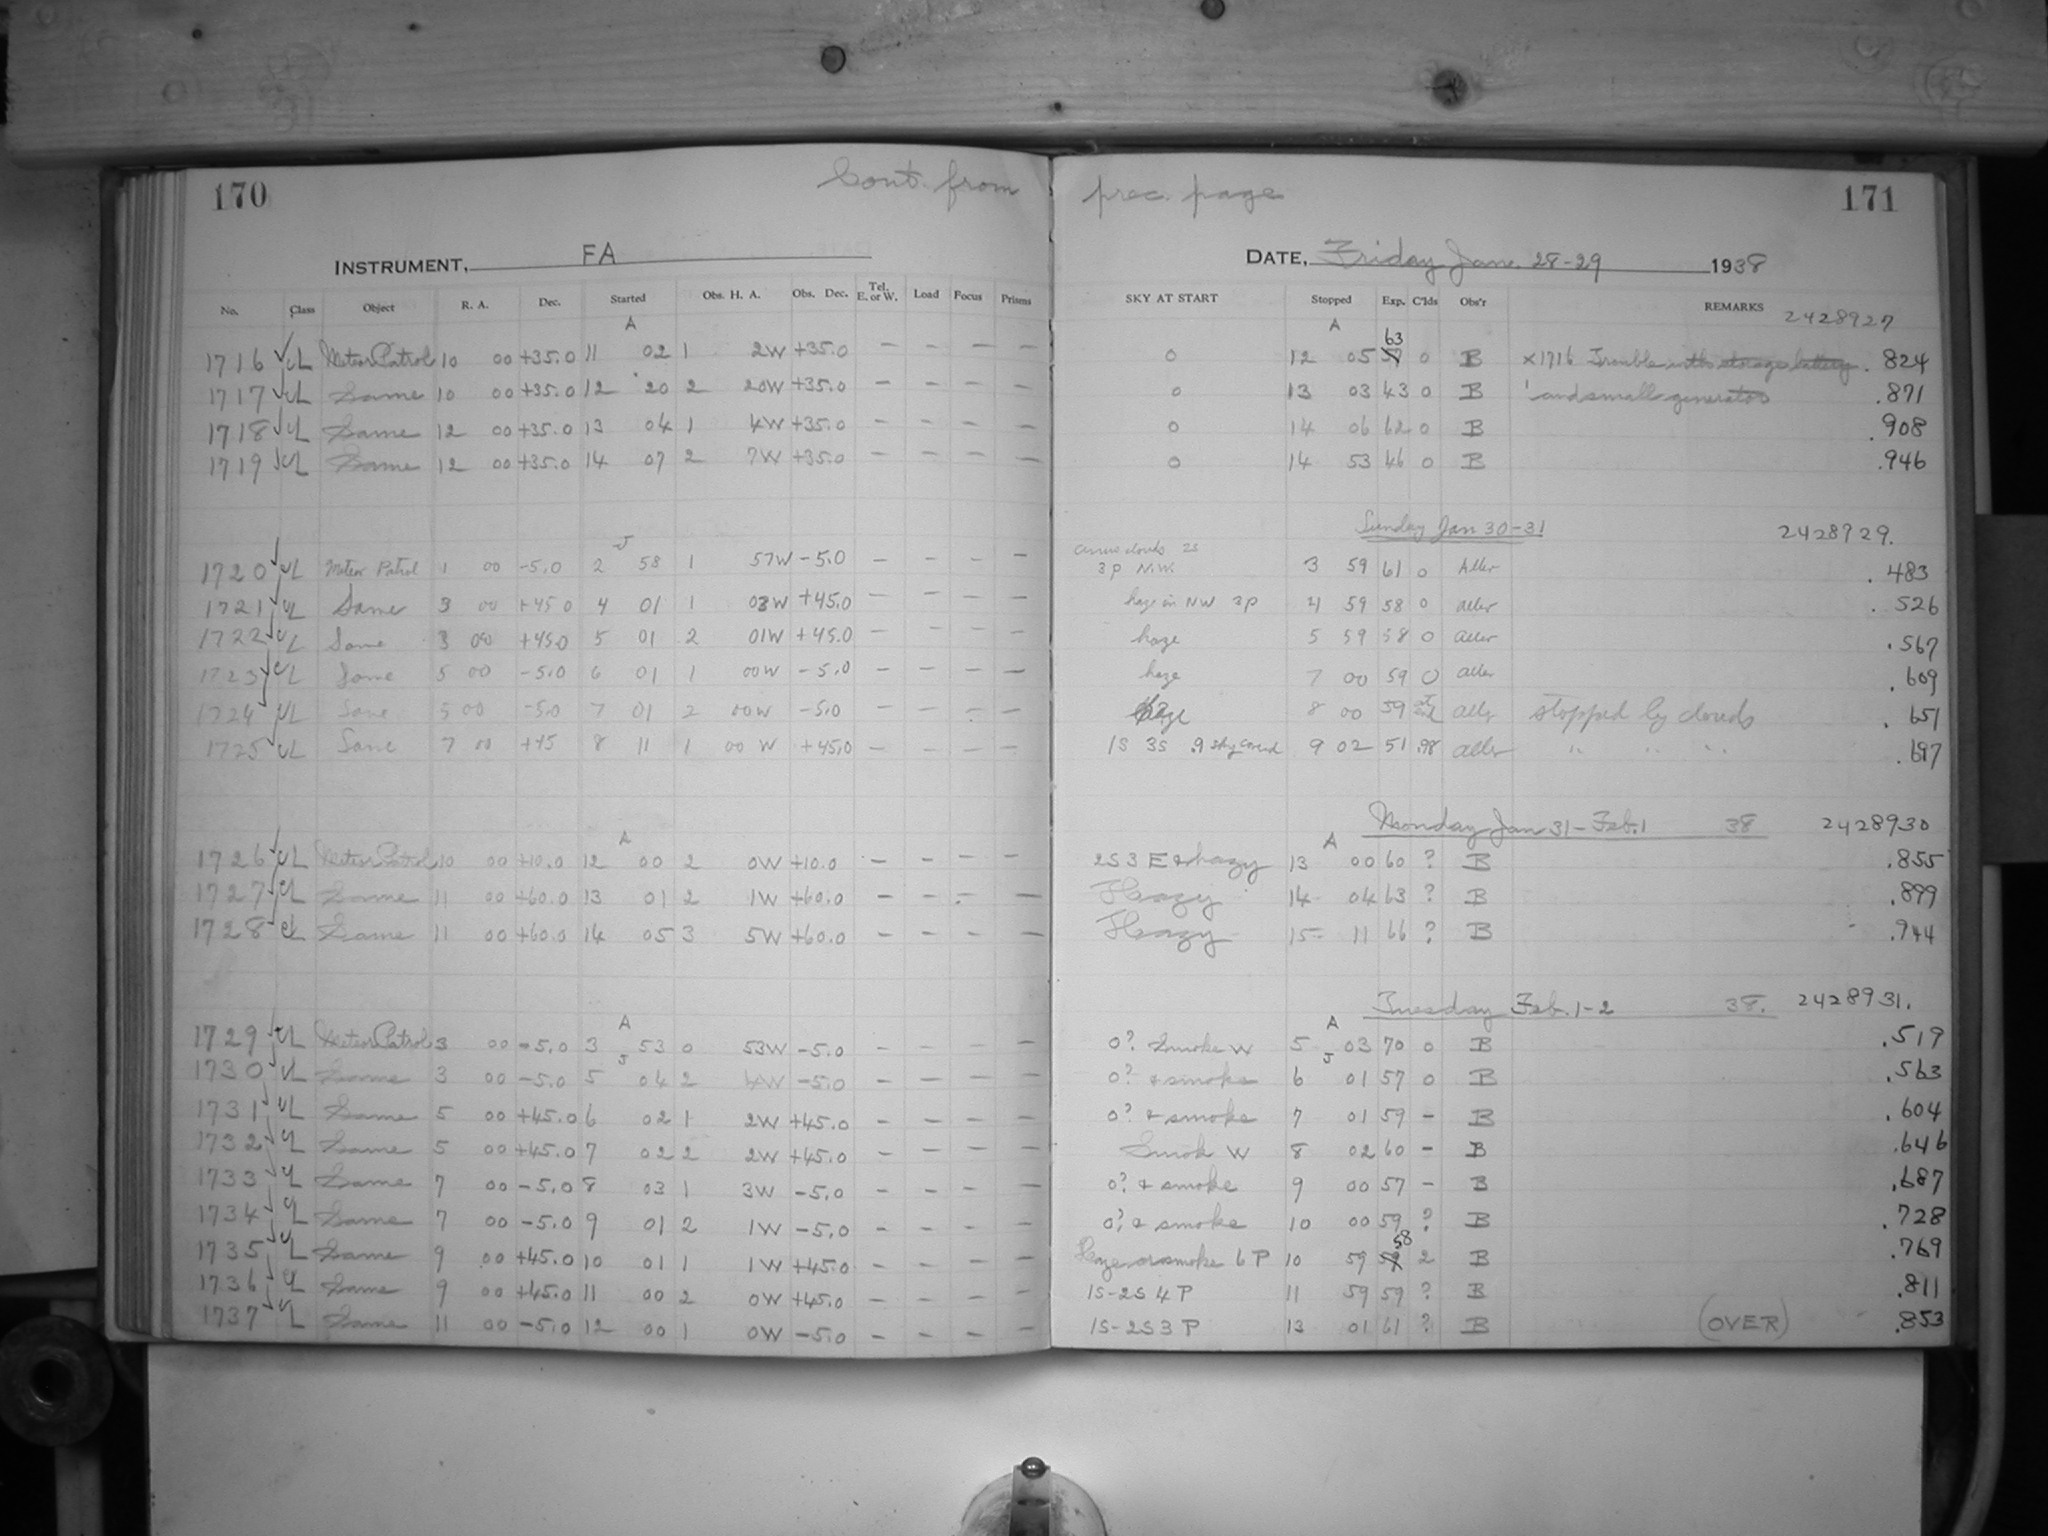 170 Cont. from prec. page 171
INSTRUMENT, FA DATE, Friday Jan. 28-29 1938
No. Class Object R. A. Dec. Started Obs. H. A. Obs. Dec. Tel. E. or W. Load Focus Prisms SKY AT START Stopped Exp. C'lds Obs'r REMARKS 2428927
A A 63
1716 L Meteor Patrol 10 00 +35.0 11 02 1 2W +35.0 — — — — 0 12 05 0 B x1716 Trouble with storage battery. .824
1717 L Same 10 00 +35.0 12 20 2 20W +35.0 — — — — 0 13 03 43 0 B and small generator .871
1718 L Same 12 00 +35.0 13 04 1 4W +35.0 — — — — 0 14 06 62 0 B .908
1719 L Same 12 00 +35.0 14 07 2 7W +35.0 — — — — 0 14 53 46 0 B .946
Sunday Jan 30-31 2428929.
J
1720 L Meteor Patrol 1 00 -5.0 2 58 1 57W -5.0 — — — — cirrus clouds 2S 3P N.W. 3 59 61 0 Aller .483
1721 L Same 3 00 +45.0 4 01 1 03W +45.0 — — — — haze in NW 3P 4 59 58 0 Aller .526
1722 L Same 3 00 +45.0 5 01 2 01W +45.0 — — — — haze 5 59 58 0 Aller .567
1723 L Same 5 00 -5.0 6 01 1 00W -5.0 — — — — haze 7 00 59 0 Aller .609
1724 L Same 5 00 -5.0 7 01 2 00W -5.0 — — — — haze 8 00 59 Aller stopped by clouds .651
1725 L Same 7 00 +45 8 11 1 00 W +45.0 — — — — 1S 3S .9 sky coverd 9 02 51 .98 Aller " " " .697
Monday Jan 31 - Feb. 1 38 2428930
A A
1726 L Meteor Patrol 10 00 +10.0 12 00 2 0W +10.0 — — — — 2S 3 E & hazy 13 00 60 ? B .855
1727 L Same 11 00 +60.0 13 01 2 1W +60.0 — — — — Hazy 14 04 63 ? B .899
1728 L Same 11 00 +60.0 14 05 3 5W +60.0 — — — — Hazy 15 11 66 ? B .944
Tuesday Feb. 1-2 38. 2428931.
A A
1729 L Meteor Patrol 3 00 -5.0 3 53 0 53W -5.0 — — — — 0? Smoke W 5 03 70 0 B .519
J J
1730 L Same 3 00 -5.0 5 04 2 4W -5.0 — — — — 0? & smoke 6 01 57 0 B .563
1731 L Same 5 00 +45.0 6 02 1 2W +45.0 — — — — 0? & smoke 7 01 59 — B .604
1732 L Same 5 00 +45.0 7 02 2 2W +45.0 — — — — Smok W 8 02 60 — B .646
1733 L Same 7 00 -5.0 8 03 1 3W -5.0 — — — — 0? & smoke 9 00 57 — B .687
1734 L Same 7 00 -5.0 9 01 2 1W -5.0 — — — — 0? & smoke 10 00 59 ? B .728
1735 L Same 9 00 +45.0 10 01 1 1W +45.0 — — — — Haze or smoke 6 P 10 59 58 2 B .769
1736 L Same 9 00 +45.0 11 00 2 0W +45.0 — — — — 1S-2S 4 P 11 59 59 ? B .811
1737 L Same 11 00 -5.0 12 00 1 0W -5.0 — — — — 1S-2S 3 P 13 01 61 ? B (OVER) .853